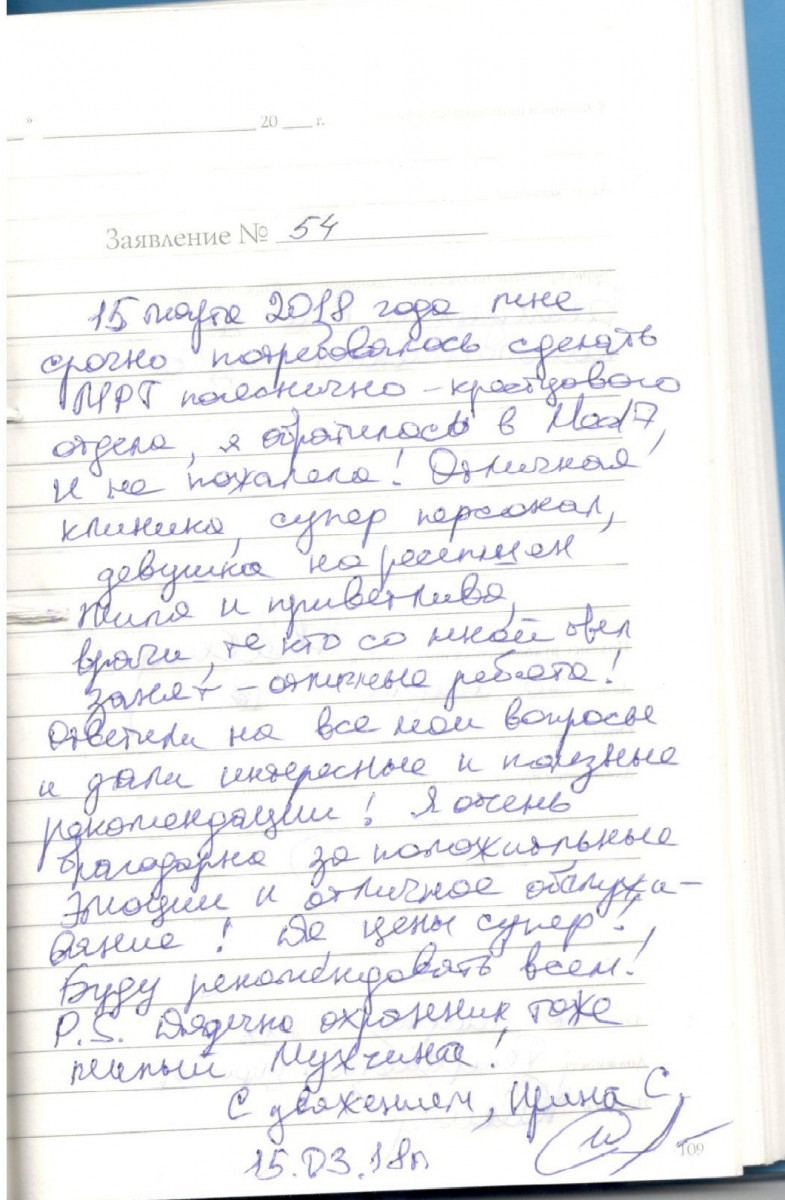 » 20 г.
Заявление № 54
15 марта 2018 года мне
срочно потребовалось сделать
МРТ пояснично-крестцового
отдела, я обратилась в
и не пожалела! Отличная
клиника, супер персонал,
девушка на ресепшен
мила и приветлива,
врачи, те кто со мной вел
занят – отличные ребята!
Ответили на все мои вопросы
и дали интересные и полезные
рекомендации! Я очень
благодарна за положительные
эмоции и отличное обслужи-
вание! Да цены супер!
Буду рекомендовать всем!
P.S. Дядечка охранник тоже
милый мужчина!
С уважением, Ирина С.
15.03.18г
109